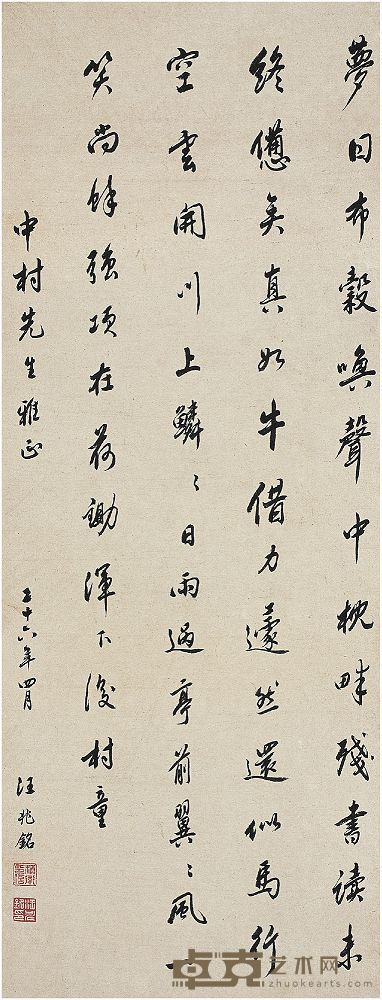 夢回布穀喚聲中枕畔殘書讀未
終憊矣真如牛借力蘧然還似馬行
空雲開川上鱗〻日雨過亭前翼〻風一
笑尚餘強項在荷鋤渾不後村童
中村先生雅正
二十六年四月 汪兆銘
卓克艺术网
zhuokearts.com